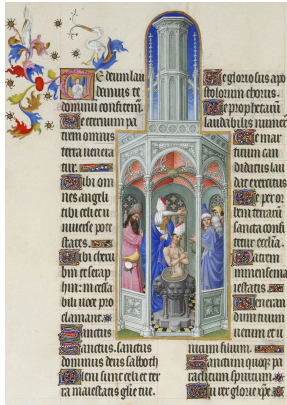 Te deum lau
damus te
dominum confitem̃.
Te eternum pa
trem omnis
terra venera
tur.
Tibi om
nes angeli
tibi celi et u
niuerse pote
states.
Tibi cherubi
bin et serap
hin: incessa
bili uoce pro
clamant.
Sanctus
Sanctus. sanctus
dominus deus sabaoth
Pleni sunt celi et ter
ra maiestatis glie tue.
Te gloriosus apo
stolorum chorus.
Te prophetarum
laudabilis numer̃
Te mar
tirum can
didatus lau
dat exercitus
Te per or
bem terrarum
sancta confi
tetur ecclia.
Patrem
immense ma
iestatis.
Veneran
dum tuum
uerum et u
nicum filium.
Sanctum quoq; pa
raclitum spiritum.
Tu rex glorie xpe.